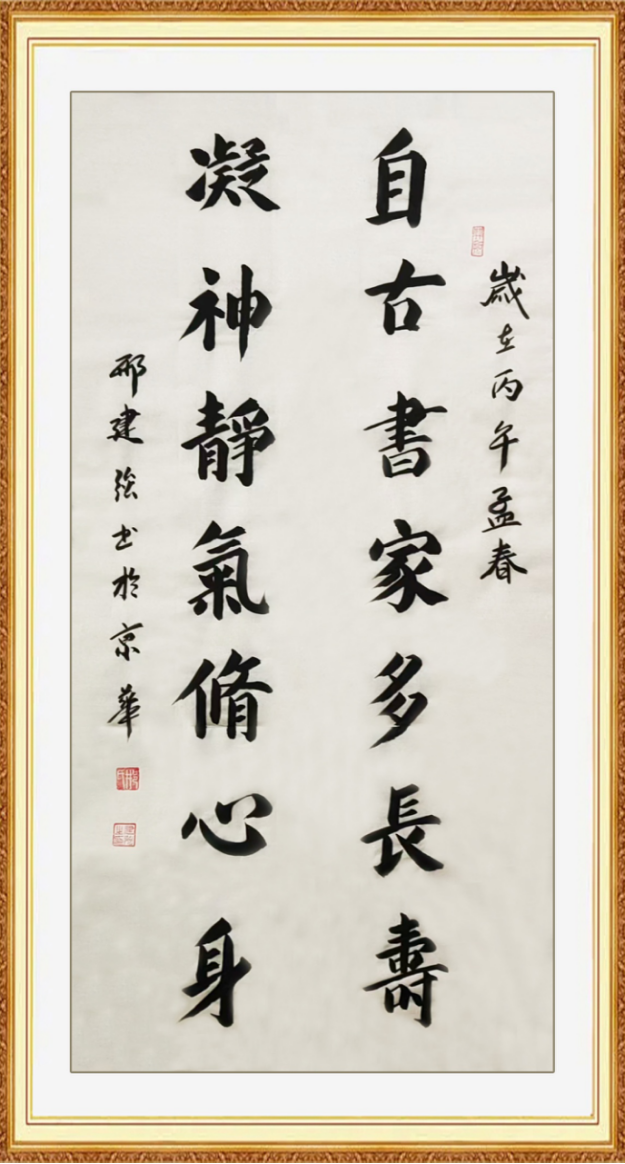 歲在丙午孟春
自古書家多長壽
凝神靜氣脩心身
邢建強书於京華